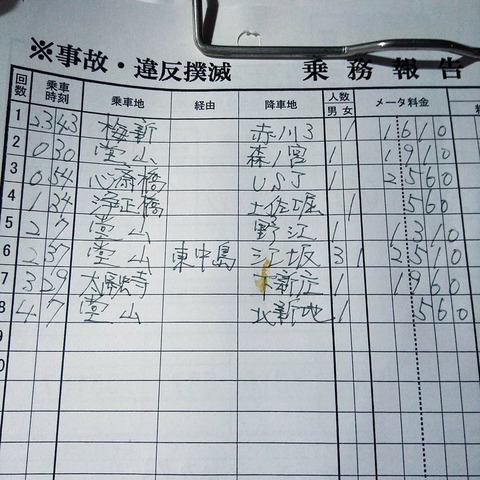 ※事故・違反撲滅 乗務報告
回数 乗車時刻 乗車地 経由 降車地 人数 男 女 メータ料金
1 23 43 梅新 赤川3 1 1610
2 0 30 堂山 森ノ宮 1 1910
3 0 54 心斎橋 USJ 1 2560
4 1 34 浄正橋 土佐堀 1 560
5 2 7 堂山 野江 1 1310
6 2 37 堂山 東中島 江坂 3 1 2510
7 3 29 太融寺 下新庄 1 1960
8 4 7 堂山 北新地 1 560
9